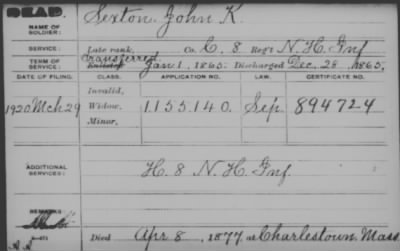 DEAD.
NAME OF SOLDIER: Sexton, John K.
SERVICE: Late rank, Co. C, 8 Reg't N.H. Inf
TERM OF SERVICE: Transferred Enlisted Jan 1, 1865. Discharged Dec. 28, 1865.
DATE OF FILING. CLASS. APPLICATION NO. LAW. CERTIFICATE NO.
Invalid,
1920 Mch 29 Widow, 1.155.140. Sep. 894724
Minor,
ADDITIONAL SERVICES: H. 8 N.H. Inf.
REMARKS:
Died Apr 8, 1877, at Charlestown, Mass